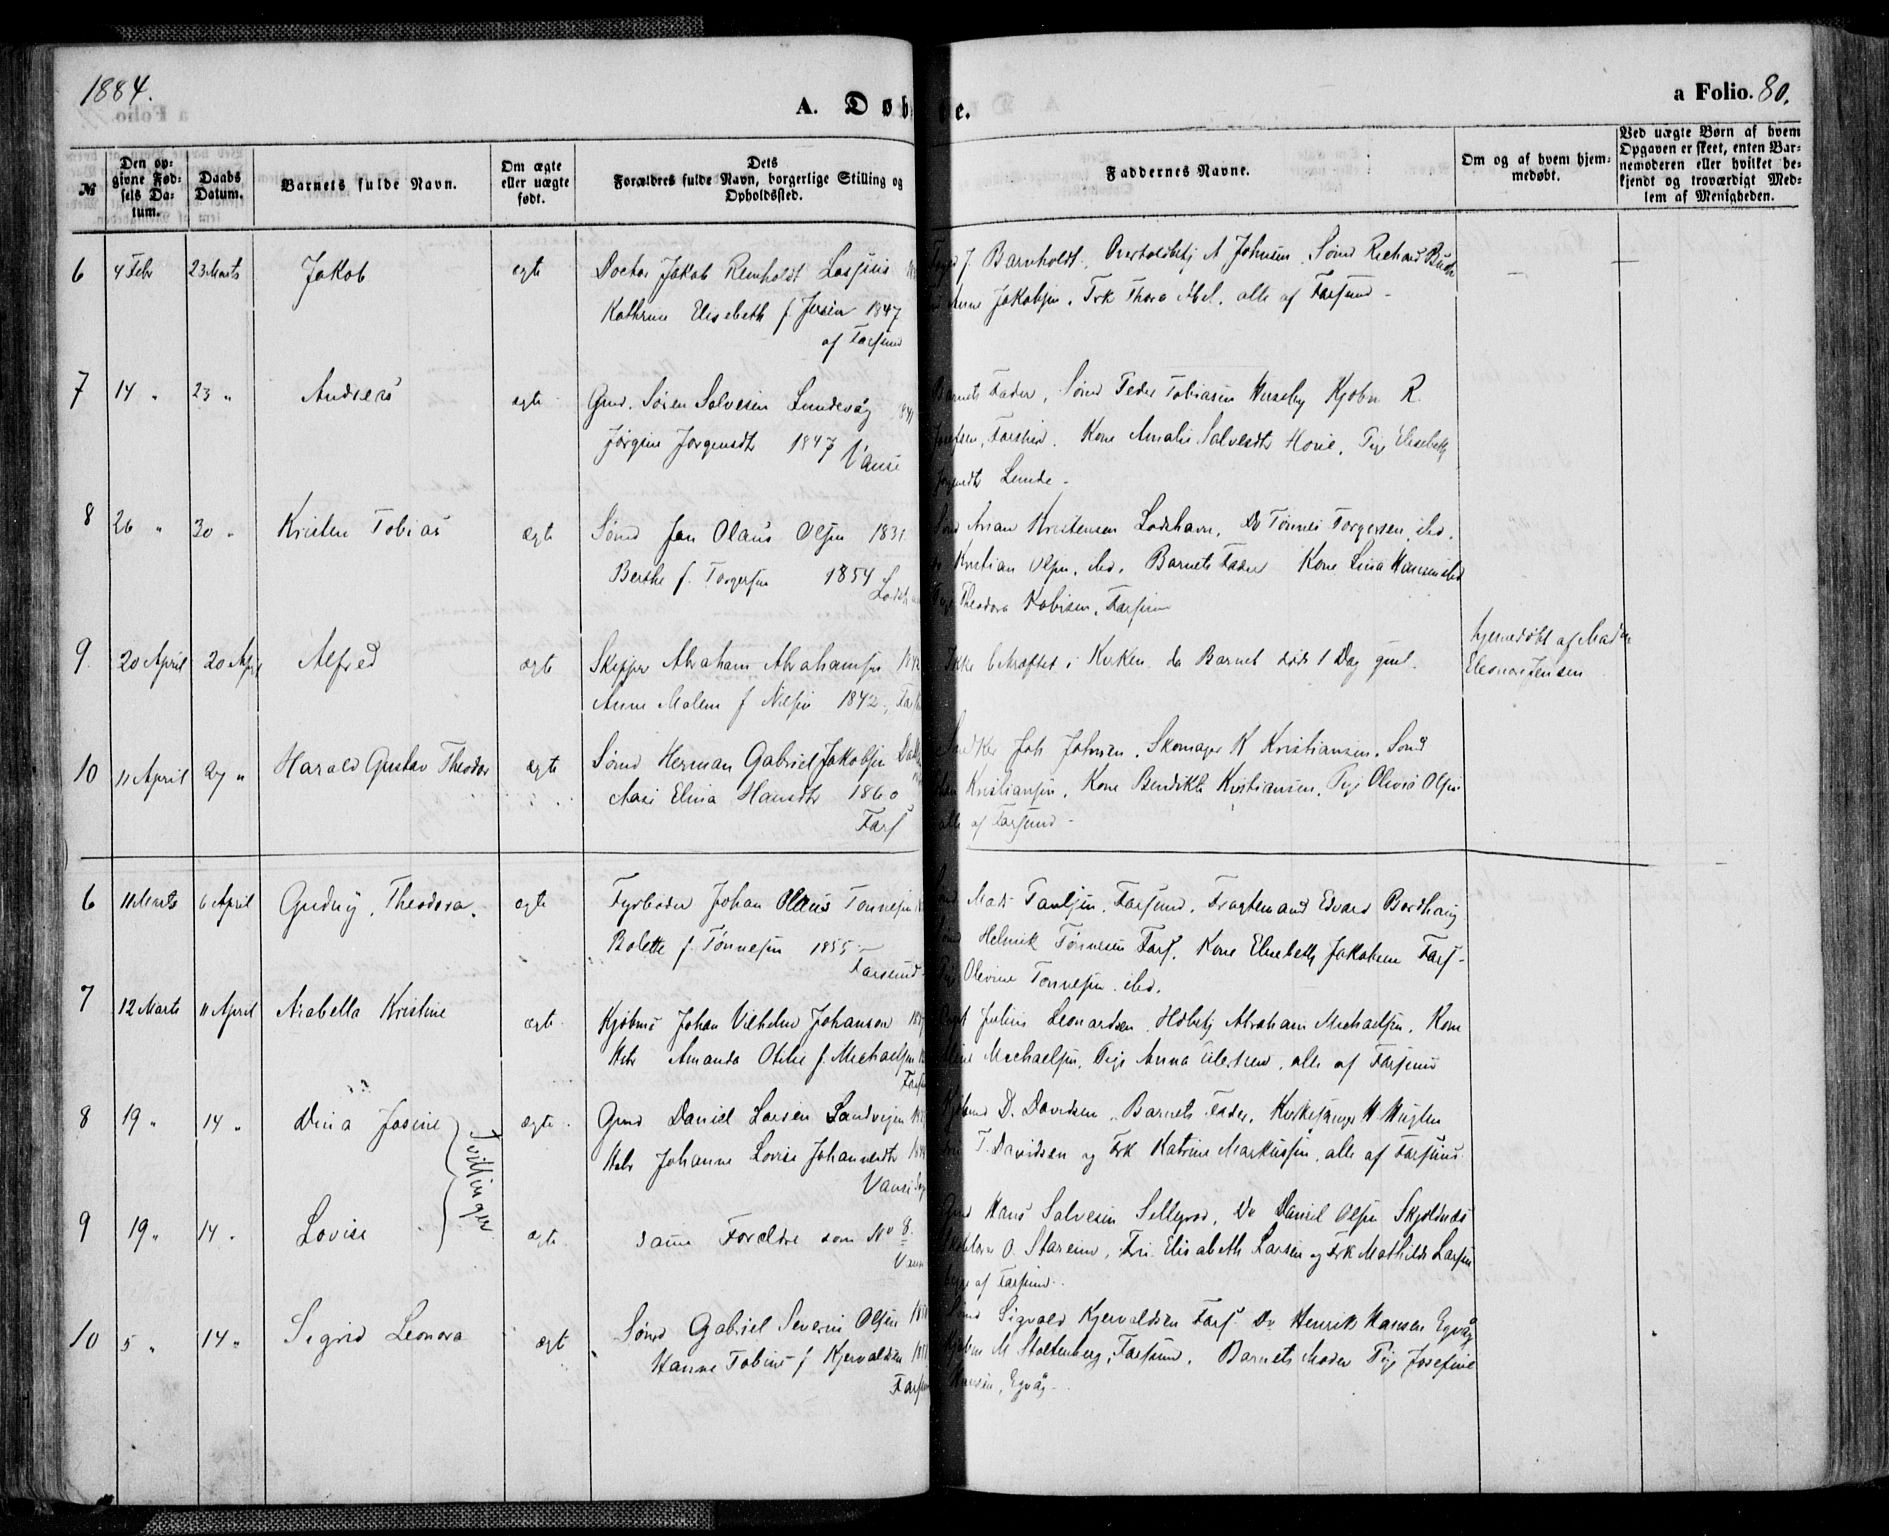 1884.
A. Døb e.
a Folio. 80.
№
Den op-
givne Fød-
sels Da-
tum.
Daabs
Datum.
Barnets fulde Navn.
Om ægte
eller uægte
født.
Dets
Forældres fulde Navn, borgerlige Stilling og
Opholdssted.
Faddernes Navne.
Om og af hvem hjem-
medøbt.
Ved uægte Børn af hvem
Opgaven er skeet, enten Bar-
nemoderen eller hvilket be-
kjendt og troværdigt Med-
lem af Menigheden.
6 4 Febr 23 Marts Jakob ægte Doctor Jakob Reinholdt
Kathrine Elisebeth f. Jersin 1847
af Farsund
J. Barnholdt. A Johnsen. Sømd Richard
Anne Jakobsen. Frk Thora Abel. alle af Farsund -
— —
7 14 " 23 " Andreas ægte Gmd. Søren Salvesen Lundevåg
Jørgine Jørgensdtr 1847
Vanse
Barnets Fader, Sømd Peder Tobiasen Huseby Kjøbm R.
Farsund. Kone Amalie Salvesdtr Hovie, Pige Elisebeth
Lunde -
8 26 " 30 " Kristen Tobias ægte Sømd Jan Olaus Olsen 1831
Berthe f. Torgersen 1854
Kristensen Lodshavn, Do Tønnes Torgersen, ibd.
Kristian Olsen, ibd. Barnets Fader Kone Lina Hansen ibd
Theodora Farsund
9 20 April 20 April Alfred ægte Skipper Abraham Abrahamsen
Anne Malene f Nilsen 1842,
Ikke bekræftet i Kirken da Barnet døde 1 Dag gml.
hjemmedøbt af
Eleonore Jensen
10 11 April 27 " Harald Gustav Theodor ægte Sømd Herman Gabriel Jakobsen
Elina Hansdtr 1860
Fars
Snedker Joh Johnsen, Skomager K Kristiansen, Sømd
Kristiansen, Kone Bendikte Kristiansen, Pige Olivia Olsen
alle af Farsund -
6 11 Marts 6 April Gudny, Theodora. ægte Fyrbøder Johan Olaus Tønnesen
Bolette f. Tønnesen 1855
Farsund
Mads Paulsen, Farsund, Fragtemand Edvard
Helmik Tønnesen Fars, Kone Elisebeth Jakobsen Fars -
Olevine Tønnesen ibd.
7 12 Marts 11 April Arabella Kristine ægte Kjøbmd Johan Vilhelm Johansen
Hstr Amanda Otilie f. Michaelsen
Julius Leonardsen, Abraham Michaelsen, Kone
Michaelsen, Pige Anna alle af Farsund
8 19 " 14 " Dina Josine ægte Gmd Daniel Larsen
Hstr Johanne Lovise Johannesdtr
Vanse
Tvillinger
D. Davidsen, Barnets Fader, Kirkesanger
T. Davidsen og Frk Katrine Markussen, alle af Farsund
9 19 " 14 " Lovise ægte samme Forældre som No 8.
Hans Salvesen Do Daniel Olsen Skjoldnæs
O. Stareim, Fru Elisabeth Larsen og Frk Mathilde Larsen
af Farsund
10 5 " 14 " Sigrid Leonora ægt Sømd Gabriel Severin Olsen
Hanne Tobine f Kjervaldsen
Farsund
Sigvald Kjervaldsen Fars Do Henrik Hansen Egvåg
M Stoltenberg, Farsund. Barnets Moder Pige Josefine
Hansen, Egvåg -